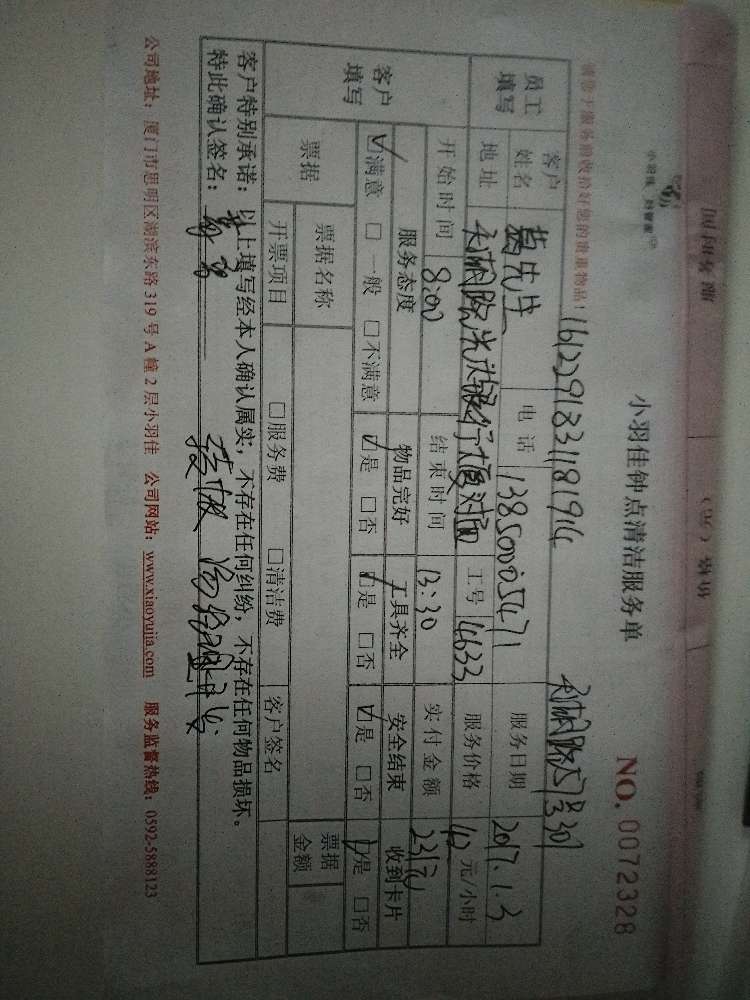 小羽佳 好管家
小羽佳钟点清洁服务单
NO. 0072328
请您于服务前收拾好您的贵重物品!
1612291831181914
员工填写
客户姓名
葛先生
电话
13850005471
服务日期
2017.1.3
地址
工号
4633
服务价格
40 元/小时
客户填写
开始时间
8:00
结束时间
13:30
实付金额
231元
服务态度
物品完好
工具齐全
安全结束
收到卡片
☑满意 □一般 □不满意
☑是 □否
☑是 □否
☑是 □否
☑是 □否
票据
票据名称
票据金额
开票项目
□服务费 □清洁费
客户签名
客户特别承诺:以上填写经本人确认属实,不存在任何纠纷,不存在任何物品损坏。
特此确认签名:
公司地址:厦门市思明区湖滨东路 319 号 A 幢 2 层小羽佳 公司网站:www.xiaoyujia.com 服务监督热线:0592-5888123